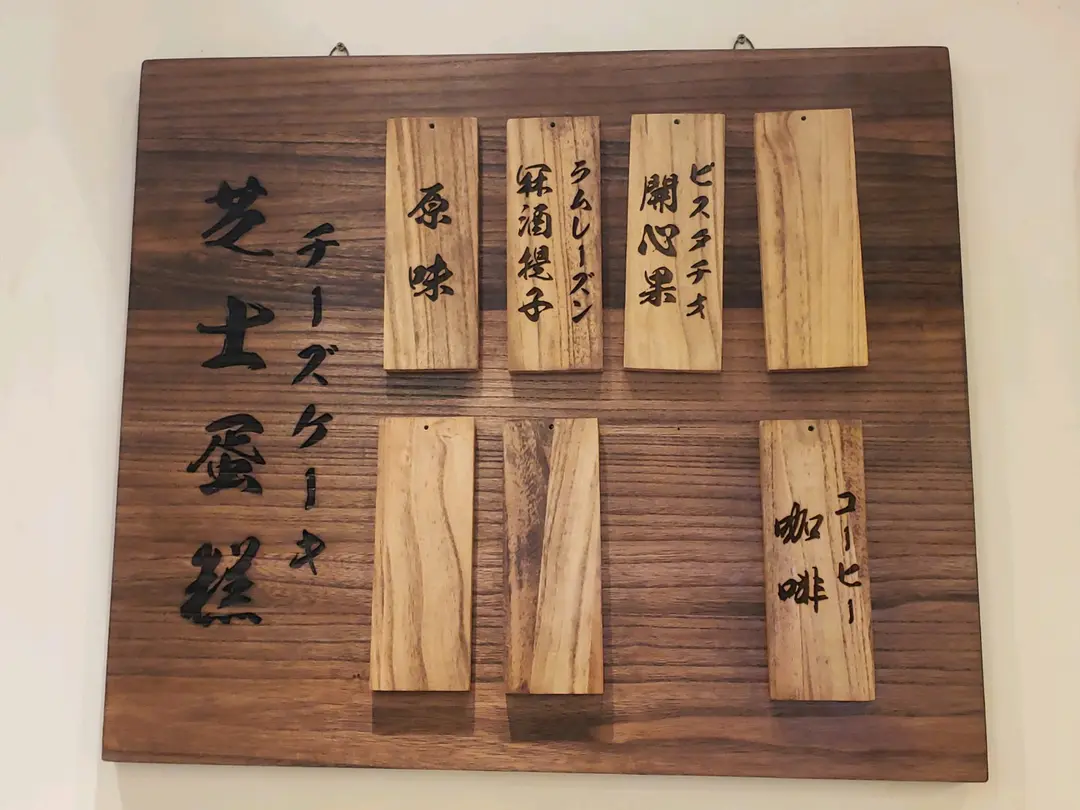 芝士蛋糕
チーズケーキ
原味
冧酒提子
ラムレーズン
開心果
ピスタチオ
咖啡
コーヒー